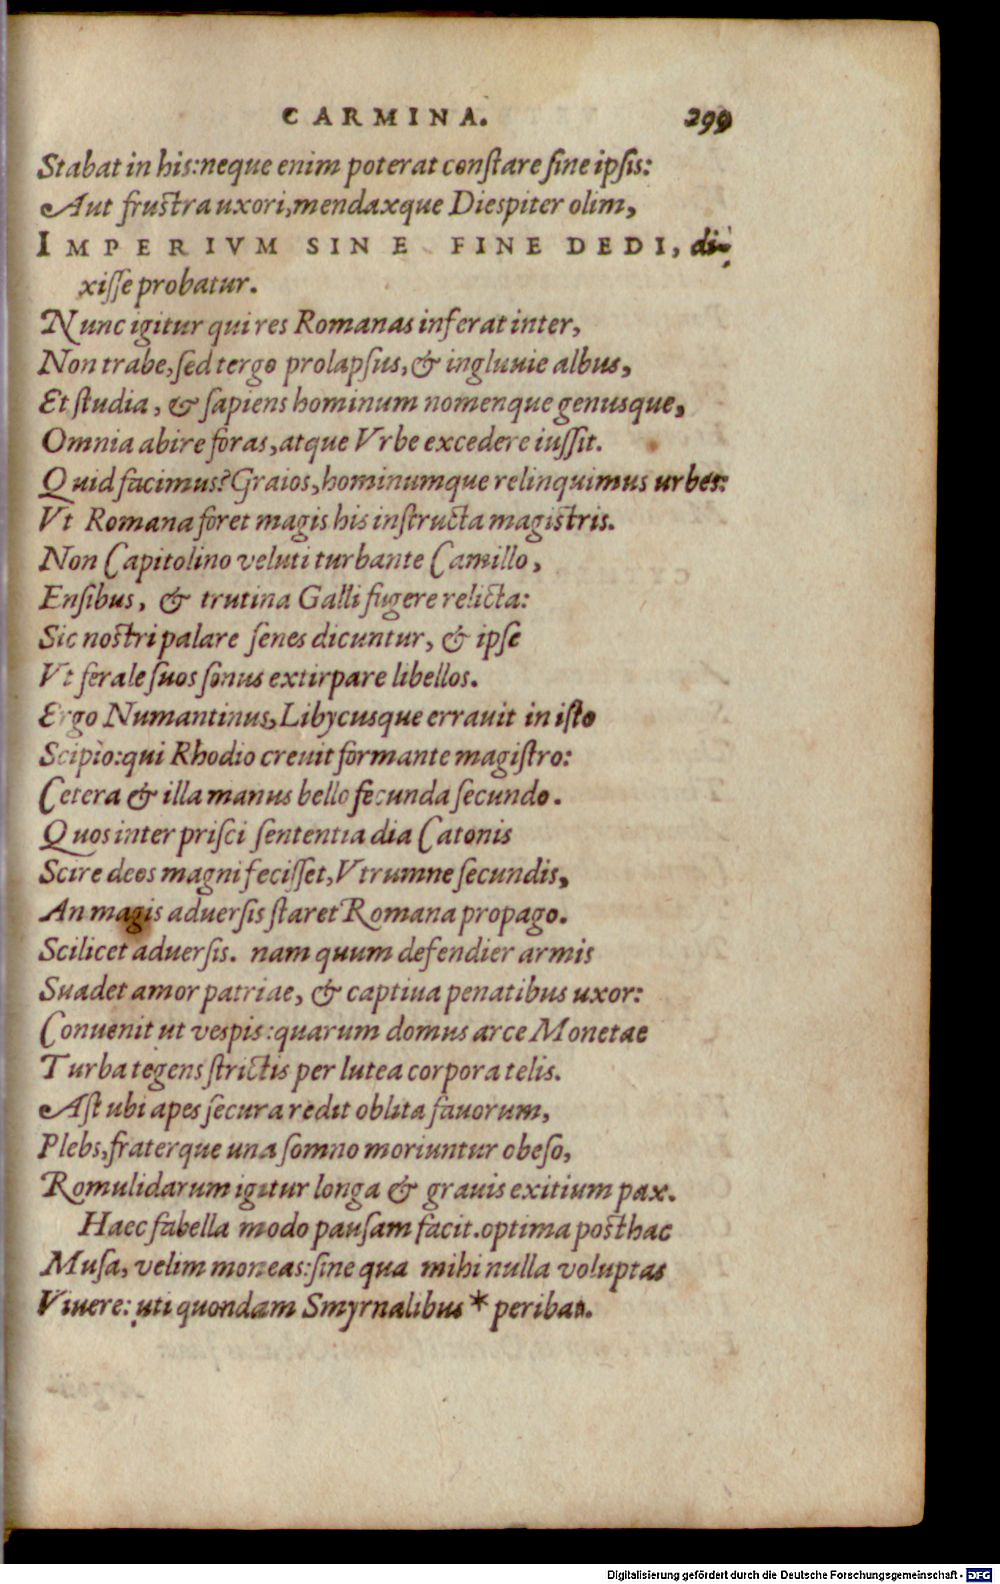 CARMINA. 299
Stabat in his: neque enim poterat conſtare ſine ipſis:
Aut fruſtra uxori, mendaxque Dieſpiter olim,
IMPERIVM SINE FINE DEDI, di-
xiſſe probatur.
Nunc igitur qui res Romanas inferat inter,
Non trabe, ſed tergo prolapſus, & ingluuie albus,
Et ſtudia, & ſapiens hominum nomenque genusque,
Omnia abire foras, atque Vrbe excedere iuſſit.
Quid facimus? Graios, hominumque relinquimus urbes:
Vt Romana foret magis his inſtructa magiſtris.
Non Capitolino veluti turbante Camillo,
Enſibus, & trutina Galli fugere relicta:
Sic noſtri palare ſenes dicuntur, & ipſe
Vt ferale ſuos ſonus extirpare libellos.
Ergo Numantinus, Libycusque errauit in iſto
Scipio: qui Rhodio creuit formante magiſtro:
Cetera & illa manus bello fecunda ſecundo.
Quos inter priſci ſententia dia Catonis
Scire deos magni feciſſet, Vtrumne ſecundis,
An magis aduerſis ſtaret Romana propago.
Scilicet aduerſis. nam quum defendier armis
Suadet amor patriae, & captiua penatibus uxor:
Conuenit ut veſpis: quarum domus arce Monetae
Turba tegens ſtrictis per lutea corpora telis.
Aſt ubi apes ſecura redit oblita fauorum,
Plebs, fraterque una ſomno moriuntur obeſo,
Romulidarum igitur longa & grauis exitium pax.
Haec fabella modo pauſam facit. optima poſthac
Muſa, velim moneas: ſine qua mihi nulla voluptas
Viuere: uti quondam Smyrnalibus * peribat.
Digitalisierung gefördert durch die Deutsche Forschungsgemeinschaft - DFG